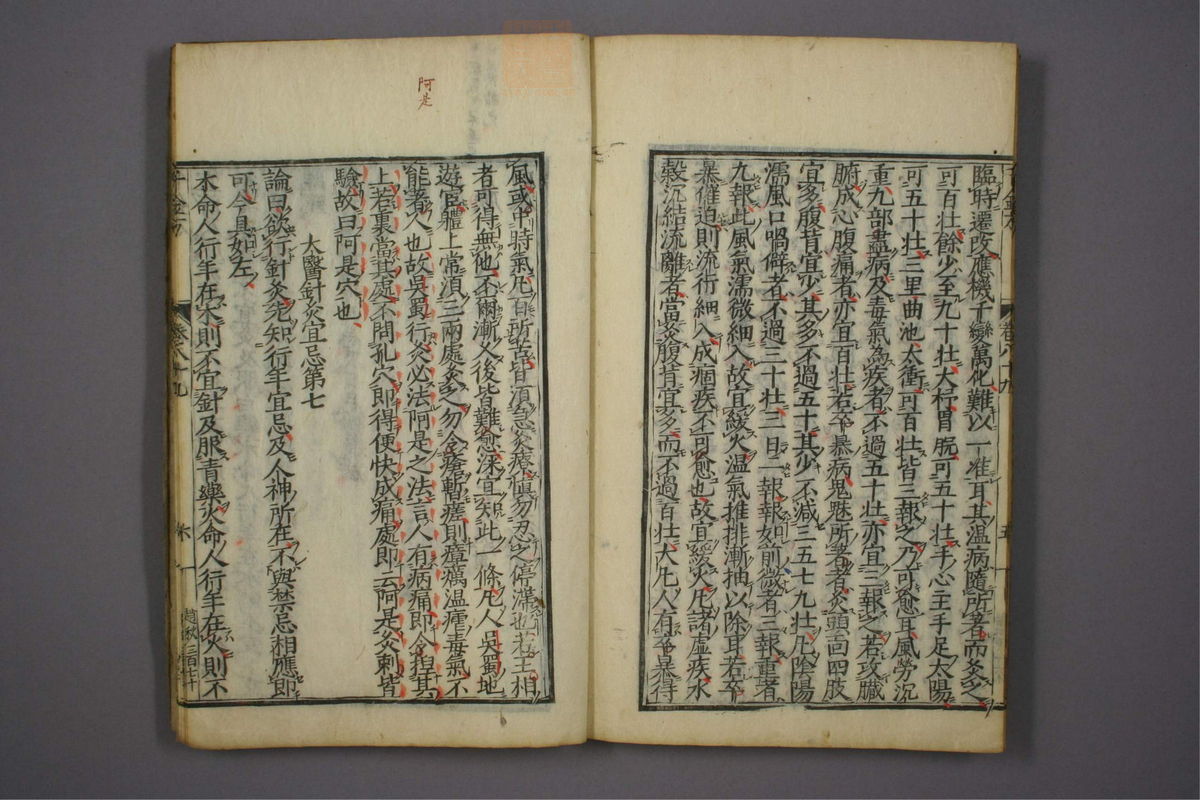 臨時遷改應機千變萬化難以一准耳其溫病隨所著而灸之
可百壯餘少至九十壯大杼胃脘可五十壯手心主手足太陽
可五十壯三里曲池太衝可百壯皆三報之乃可愈耳風勞沉
重九部盡病及毒氣為疾者不過五十壯亦宜三報之若攻臟
腑成心腹痛者亦宜百壯若卒暴病鬼魅所著者灸頭面四肢
宜多腹背宜少其多不過五十其少不減三五七九壯凡陰陽
濡風口喎僻者不過三十壯三日一報報如前微者三報重者
九報此風氣濡微細入故宜緩火溫氣推排漸抽以除耳若卒
暴催迫則流行細入成痼疾不可愈也故宜緩火凡諸虛疾水
穀沉結流離者當灸腹背宜多而不過百壯大凡人有卒暴得
風或中時氣凡百所苦皆須急灸療慎勿忍之停滯也若王相
者可得無他不爾漸久後皆難愈深宜知此一條凡人吳蜀地
遊宦體上常須三兩處灸之勿令瘡暫瘥則瘴癘溫瘧毒氣不
能著人也故吳蜀行灸必法阿是之法言人有病痛即令捏其
上若裏當其處不問孔穴即得便快成痛處即云阿是灸刺皆
驗故曰阿是穴也
太醫針灸宜忌第七
論曰欲行針灸先知行年宜忌及人神所在不與禁忌相應即
可今具如左
木命人行年在木則不宜針及服青藥火命人行年在火則不
阿是